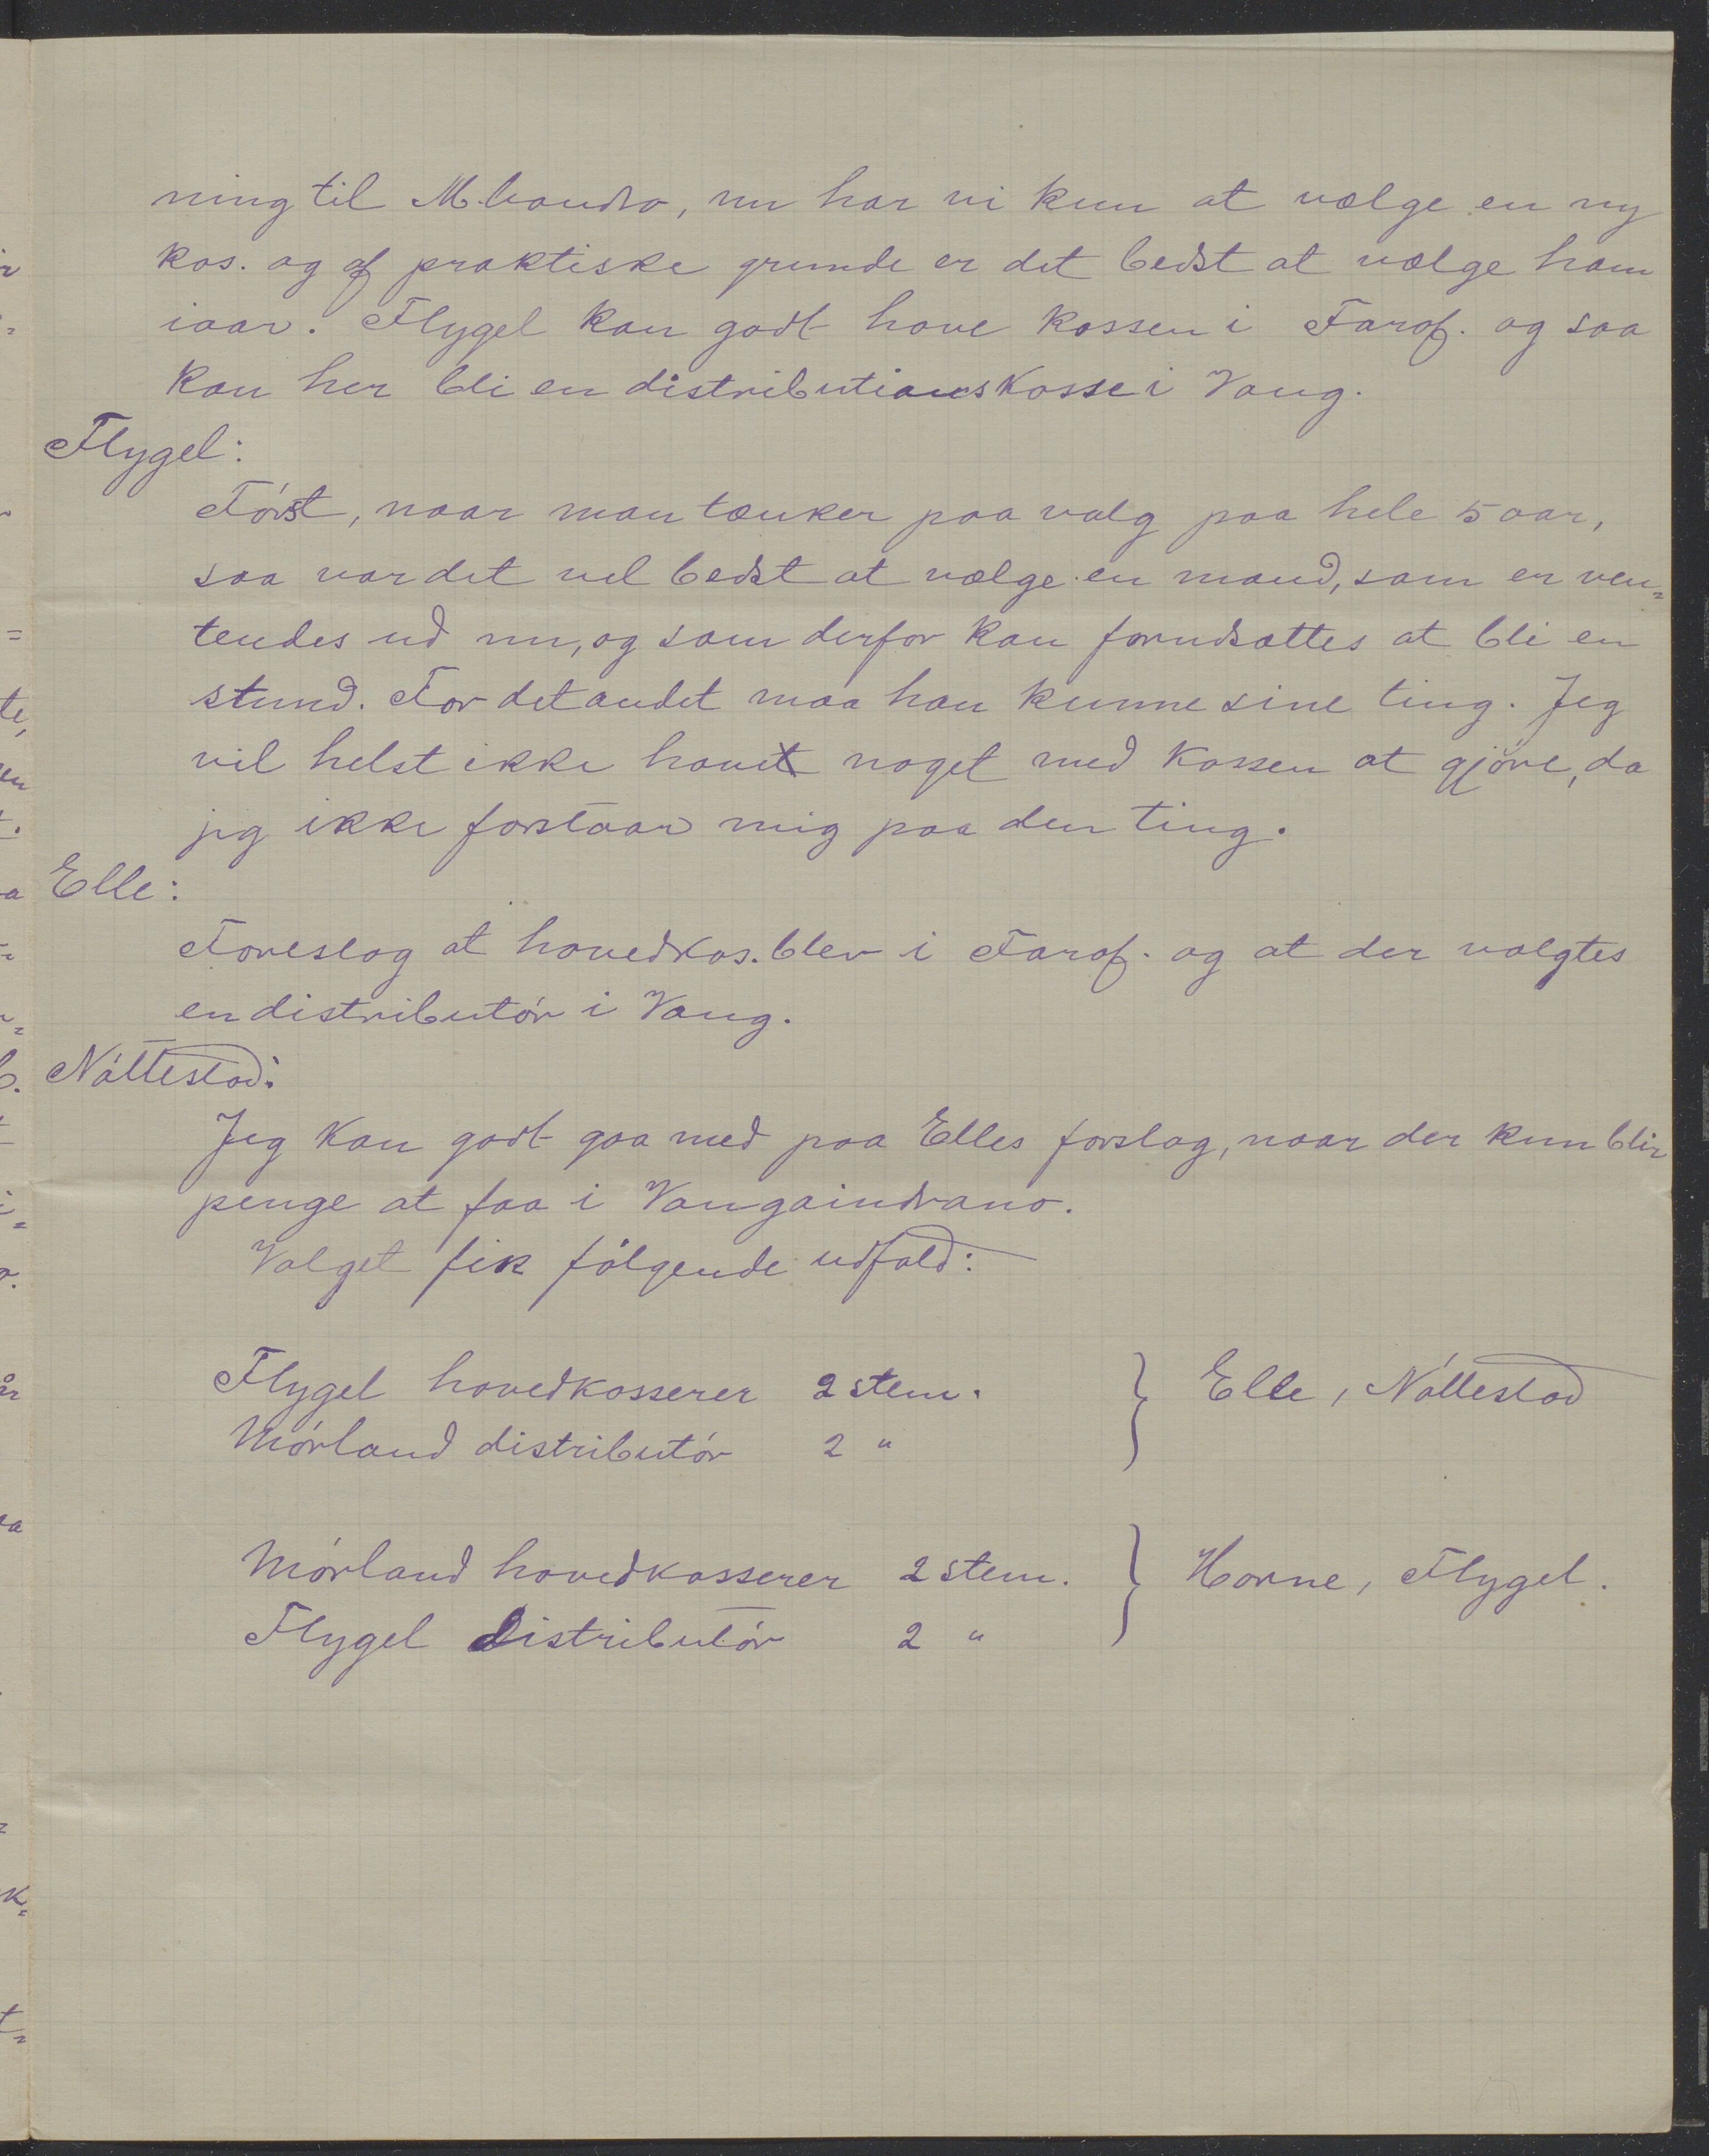 ning til Mbandro, nu har vi kun at vælge en ny
kas. og af praktiske grunde er det bedst at vælge ham
iaar. Flygel kan godt have kassen i Faraf. og saa
kan her bli en distributionskasse i Vang.
Flygel:
Först, naar man tænker paa valg paa hele 5 aar,
saa var det vel bedst at vælge en mand, som er ven=
tendes ud nu, og som derfor kan forudsættes at bli en
stund. For det andet maa han kunne sine ting. Jeg
vil helst ikke have noget med kassen at gjöre, da
jeg ikke forstaar mig paa den ting.
Elle:
Foreslog at hovedkas. blev i Faraf. og at der valgtes
en distributör i Vang.
Nöttestad:
Jeg kan godt gaa med paa Elles forslag, naar der kun blir
penge at faa i Vangaindrano.
Valget fik fölgende udfald:
Flygel hovedkasserer 2 stem. } Elle, Nöttestad
Mörland distributör 2 "
Mörland hovedkasserer 2 stem. } Horne, Flygel.
Flygel distributör 2 "